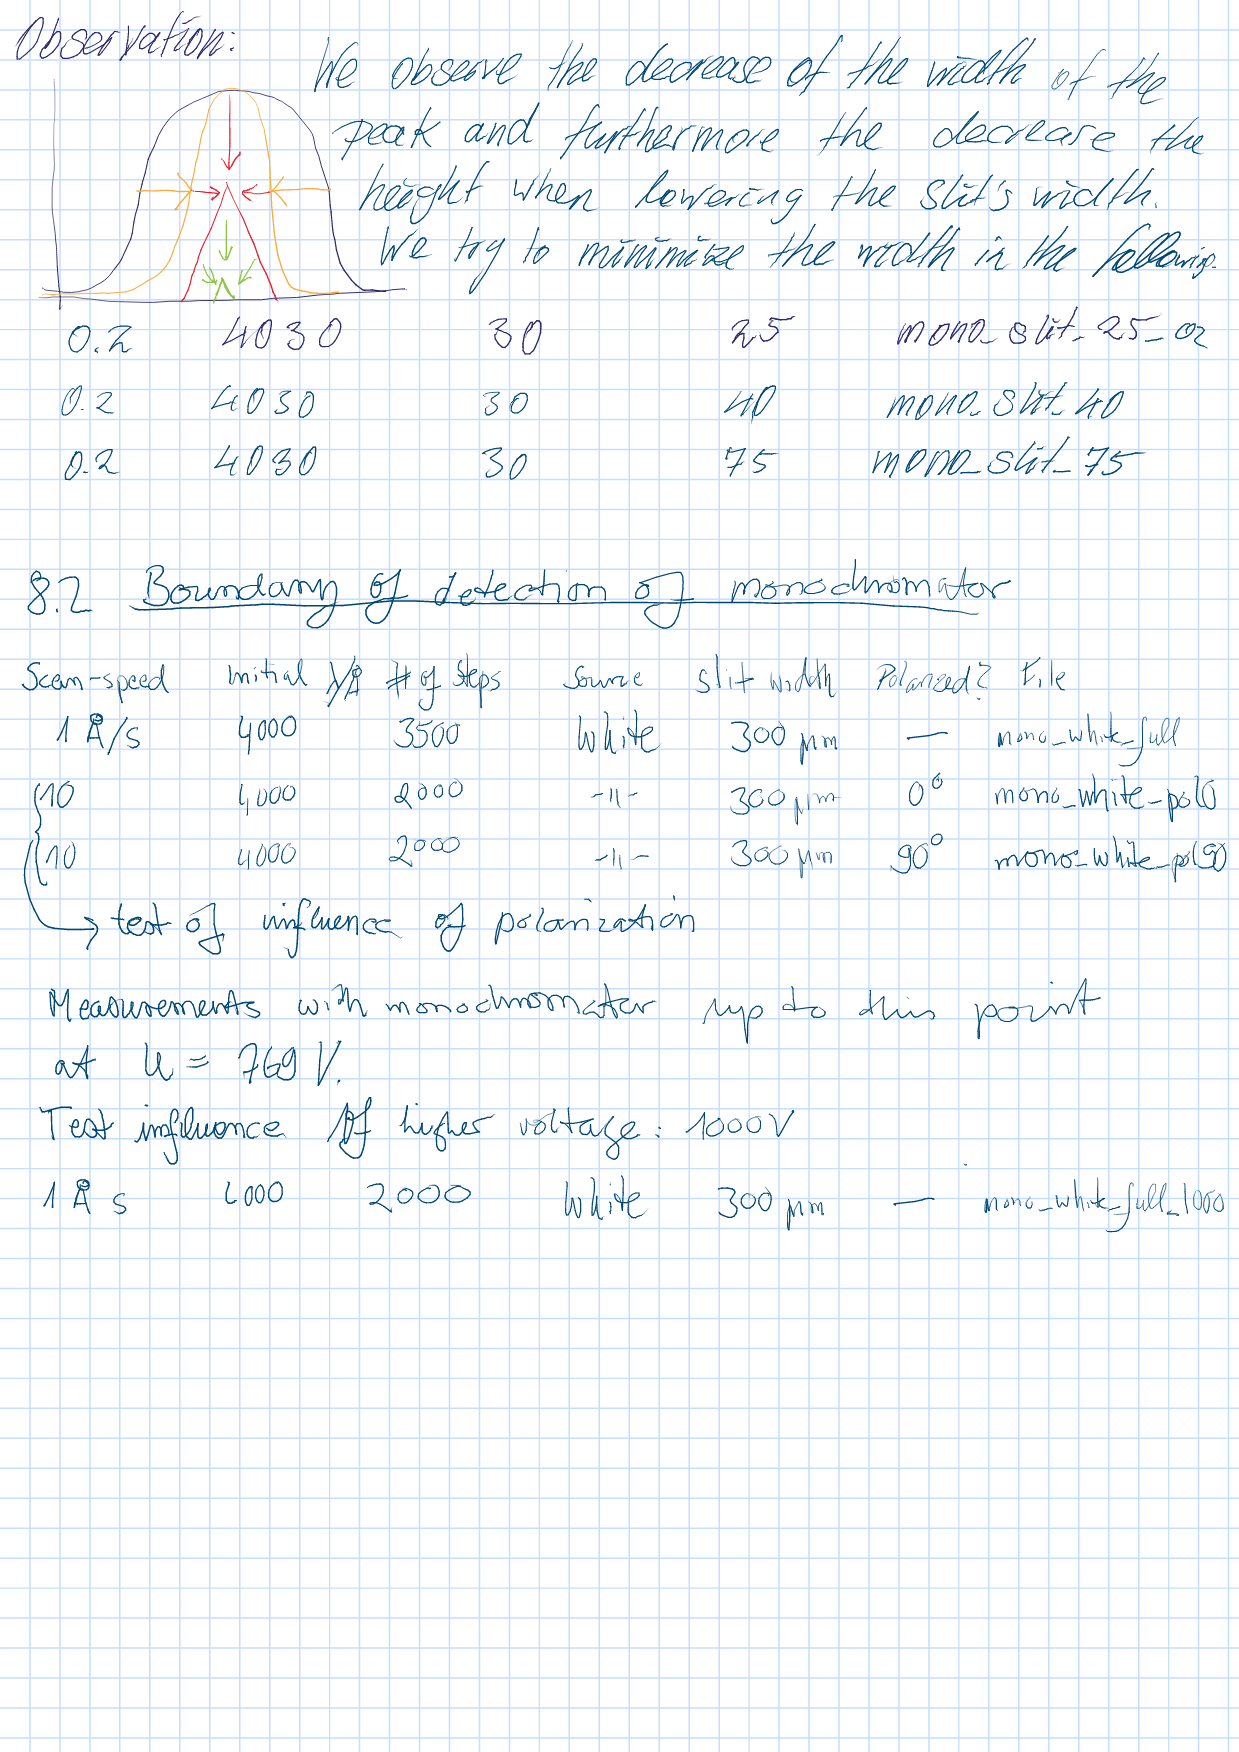 Observation:
We observe the decrease of the width of the
peak and furthermore the decrease the
height when lowering the slit's width.
We try to minimize the width in the following.
0.2 4030 30 25 mono_slit_25_02
0.2 4030 30 40 mono_slit_40
0.2 4030 30 75 mono_slit_75
8.2 Boundary of detection of monochromator
Scan-speed Initial λ/Å # of Steps Source Slit width Polarized? File
1 Å/s 4000 3500 White 300 μm — mono_white_full
10 4000 2000 -11- 300 μm 0° mono_white_pol0
10 4000 2000 -11- 300 μm 90° mono_white_pol90
→ test of influence of polarization
Measurements with monochromator up to this point
at U = 769 V.
Test influence of higher voltage: 1000V
1 Å s 4000 2000 White 300 μm — mono_white_full_1000